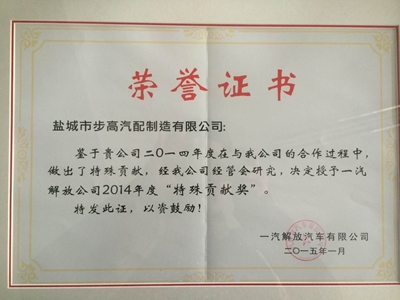 荣誉证书
盐城市步高汽配制造有限公司:
鉴于贵公司二〇一四年度在与我公司的合作过程中,
做出了特殊贡献，经我公司经管会研究，决定授予一汽
解放公司2014年度“特殊贡献奖”。
特发此证，以资鼓励!
一汽解放汽车有限公司
二〇一五年一月